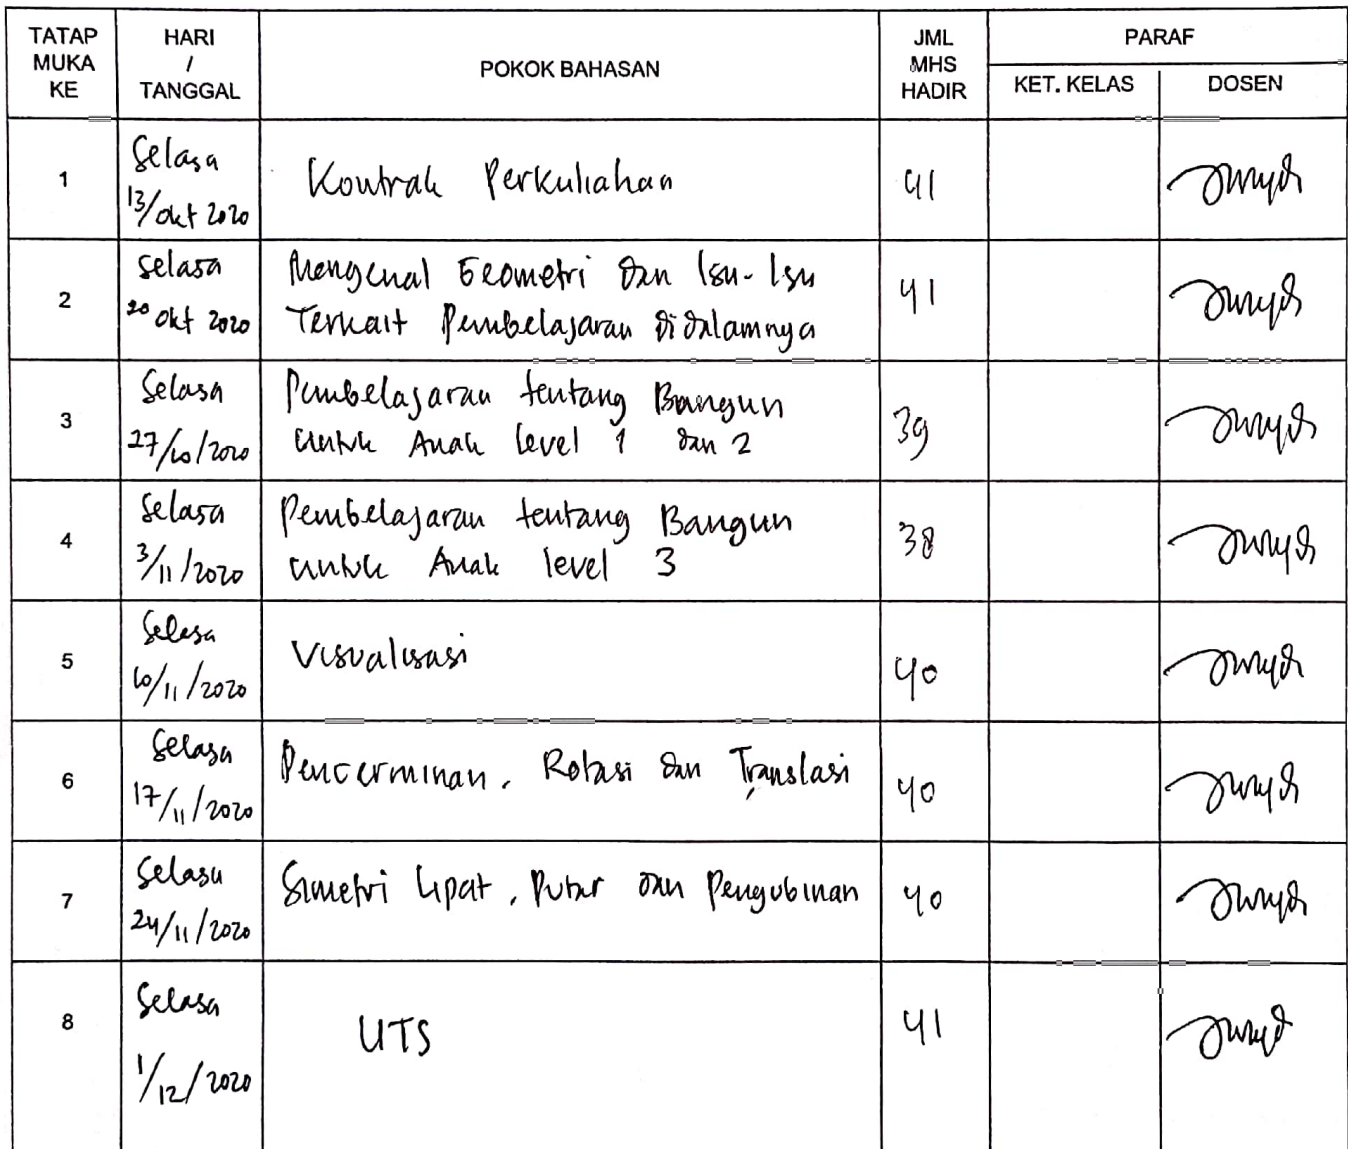 TATAP MUKA KE | HARI / TANGGAL | POKOK BAHASAN | JML MHS HADIR | PARAF
KET. KELAS | DOSEN
1 | Selasa 13/Okt 2020 | Kontrak Perkuliahan | 41
2 | Selasa 20 Okt 2020 | Mengenal Geometri dan Isu-Isu
Terkait Pembelajaran didalamnya | 41
3 | Selasa 27/10/2020 | Pembelajaran tentang Bangun
untuk Anak level 1 dan 2 | 39
4 | Selasa 3/11/2020 | Pembelajaran tentang Bangun
untuk Anak level 3 | 38
5 | Selasa 10/11/2020 | Visualisasi | 40
6 | Selasa 17/11/2020 | Pencerminan, Rotasi dan Translasi | 40
7 | Selasa 24/11/2020 | Simetri Lipat, Putar dan Pengubinan | 40
8 | Selasa 1/12/2020 | UTS | 41